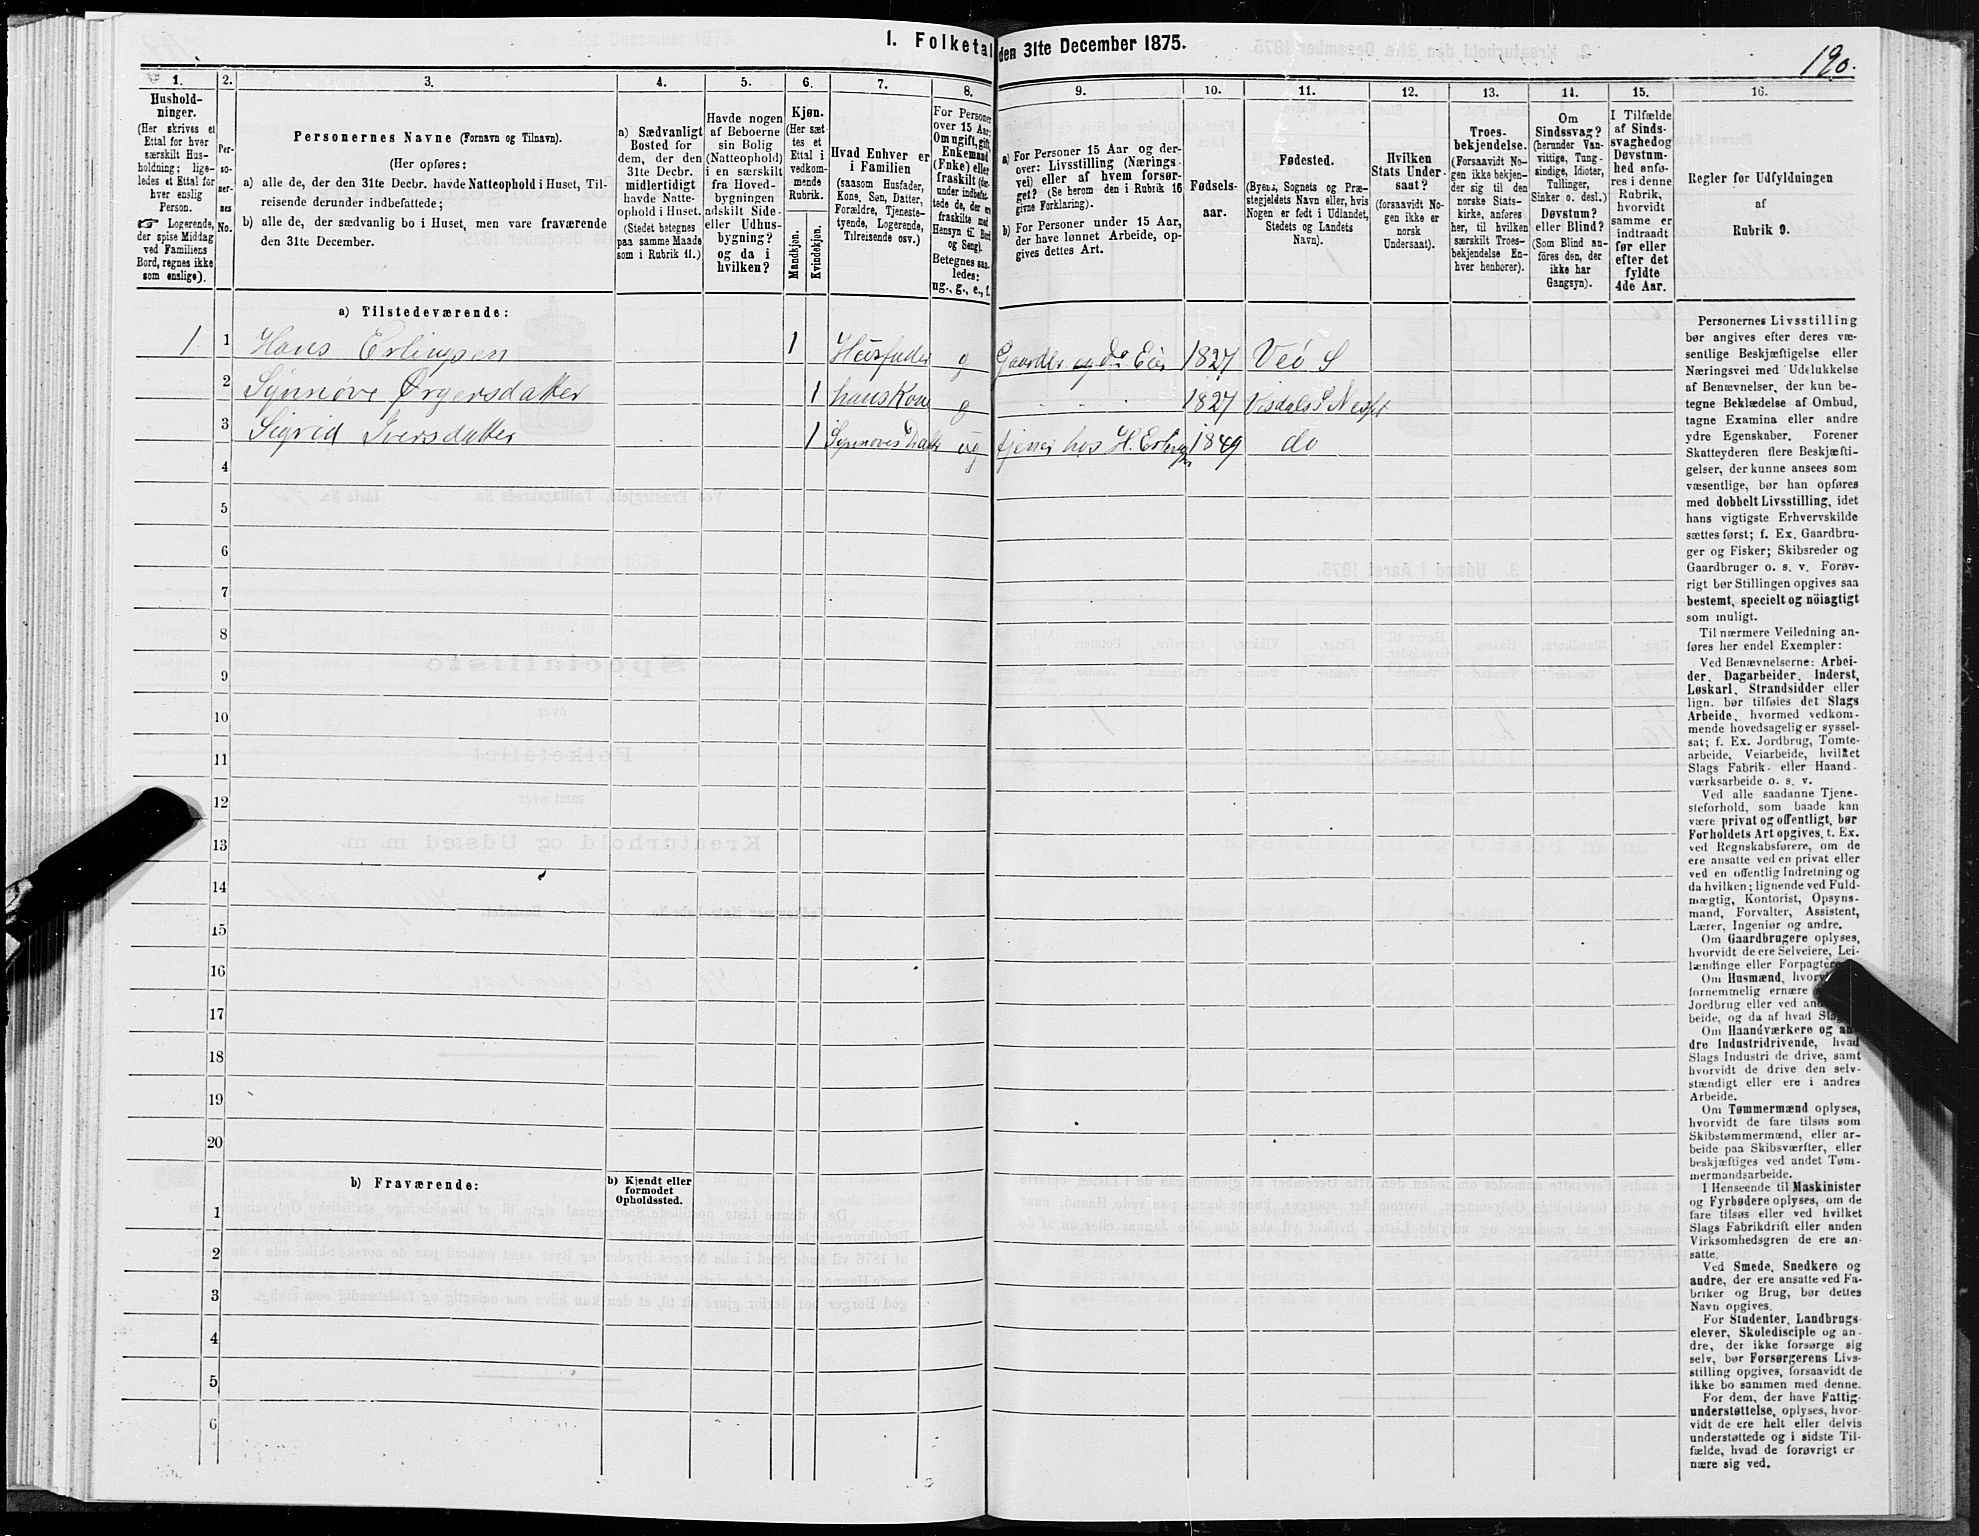 I. Folketal den 31te December 1875.
190.
1.
2.
3.
4.
5.
6.
7.
8.
9.
10.
11.
12.
13.
14.
15.
16.
Husholdninger.
(Her skrives et Ettal for hver særskilt Husholdning; ligeledes et Ettal for hver enslig Person.
Logerende, der spise Middag ved Familiens Bord, regnes ikke som enslige).
Personernes No.
Personernes Navne (Fornavn og Tilnavn).
(Her opføres:
a) alle de, der den 31te Decbr. havde Natteophold i Huset, Tilreisende derunder indbefattede;
b) alle de, der sædvanlig bo i Huset, men vare fraværende den 31te December.
a) Sædvanligt Bosted for dem, der den 31te Decbr. midlertidigt havde Natteophold i Huset. (Stedet betegnes paa samme Maade som i Rubrik 11.)
Havde nogen af Beboerne sin Bolig (Natteophold) i en særskilt fra Hovedbygningen adskilt Side- eller Udhusbygning? og da i hvilken?
Kjøn. (Her sættes et Ettal i vedkommende Rubrik.
Mandkjøn.
Kvindekjøn.
Hvad Enhver er i Familien (saasom Husfader, Kone, Søn, Datter, Forældre, Tjenestetyende, Logerende, Tilreisende osv.)
For Personer over 15 Aar: Om ugift, gift, Enkemand (Enke) eller fraskilt (derunder indbefattede de, der ere fraskilte med Hensyn til Bord og Seng). Betegnes saaledes: ug., g., e., f.
a) For Personer 15 Aar og derover: Livsstilling (Næringsvei) eller af hvem forsørget? (Se herom den i Rubrik 16 givne Forklaring).
b) For Personer under 15 Aar, der have lønnet Arbeide, opgives dettes Art.
Fødselsaar.
Fødested.
(Byens, Sognets og Præstegjeldets Navn, eller, hvis Nogen er født i Udlandet, Stedets og Landets Navn).
Hvilken Stats Undersaat? (forsaavidt Nogen ikke er norsk Undersaat).
Troesbekjendelse. (Forsaavidt Nogen ikke bekjender sig til den norske Statskirke, anføres her, til hvilken særskilt Troesbekjendelse Enhver henhører).
Om Sindssvag? (herunder Vanvittige, Tungsindige, Idioter, Tullinger, Sinker o. desl.) Døvstum? eller Blind? (Som Blind anføres den, der ikke har Gangsyn).
I Tilfælde af Sindssvaghed og Døvstumhed anføres i denne Rubrik, hvorvidt samme er indtraadt før eller efter det fyldte 4de Aar.
Regler for Udfyldningen af Rubrik 9.
a) Tilstedeværende:
1 1 Hans Erlingsen 1 Husfader g Gaardbr og do Eier 1827 Veø S
2 Synnøve Ørgersdatter 1 hans Kone g 1827 Visdals S Nesset
3 Sigrid Iversdatter 1 Synnøves Datter ug tjener hos H. Erlingsen 1849 do
4
5
6
7
8
9
10
11
12
13
14
15
16
17
18
19
20
b) Fraværende:
b) Kjendt eller formodet Opholdssted.
1
2
3
4
5
6
Personernes Livsstilling
bør angives efter deres væ-
sentlige Beskjæftigelse eller
Næringsvei med Udelukkelse
af Benævnelser, der kun be-
tegne Beklædelse af Ombud,
tagne Examina eller andre
ydre Egenskaber. Forener
Skatteyderen flere Beskjæfti-
gelser, der kunne ansees som
væsentlige, bør han opføres
med dobbelt Livsstilling, idet
hans vigtigste Erhvervskilde
sættes først; f. Ex. Gaardbru-
ger og Fisker; Skibsreder og
Gaardbruger o. s. v. Forøv-
rigt bør Stillingen opgives saa
bestemt, specielt og nöiagtigt
som muligt.
Til nærmere Veiledning an-
føres her endel Exempler:
Ved Benævnelserne: Arbei-
der, Dagarbeider, Inderst,
Løskarl, Strandsidder eller
lign. bør tilføies det Slags
Arbeide, hvormed vedkom-
mende hovedsagelig er syssel-
sat; f. Ex. Jordbrug, Tomte-
arbeide, Veiarbeide, hvilket
Slags Fabrik- eller Haand-
værksarbeide o. s. v.
Ved alle saadanne Tjene-
steforhold, som baade kan
være privat og offentligt, bør
Forholdets Art opgives, t. Ex.
ved Regnskabsførere, om de
ere ansatte ved en privat eller
ved en offentlig Indretning og
da hvilken; lignende ved Fuld-
mægtig, Kontorist, Opsyns-
mand, Forvalter, Assistent,
Lærer, Ingeniør og andre.
Om Gaardbrugere oplyses,
hvorvidt de ere Selveiere, Lei-
lændinge eller Forpagtere.
Om Husmænd,
fornemmelig ernære
Jordbrug eller ved
beide, og da af hvad
Om Haandværkere og
dre Industridrivende, hvad
Slags Industri de drive, samt
hvorvidt de drive den selv-
stændigt eller ere i andres
Arbeide.
Om Tømmermænd oplyses,
hvorvidt de fare tilsøs som
Skibstømmermænd, eller ar-
beide paa Skibsværfter, eller
beskjæftiges ved andet Tøm-
mermandsarbeide.
I Henseende til Maskinister
og Fyrbødere oplyses, om de
fare tilsøs eller ved hvilket
Slags Fabrikdrift eller anden
Virksomhedsgren de ere an-
satte.
Ved Smede, Snedkere og
andre, der ere ansatte ved Fa-
briker og Brug, bør dettes
Navn opgives.
For Studenter, Landbrugs-
elever, Skoledisciple og an-
dre, der ikke forsørge sig
selv, bør Forsørgerens Livs-
stilling opgives, forsaavidt de
ikke bo sammen med denne.
For dem, der have Fattig-
understøttelse, oplyses, hvor-
vidt de ere helt eller delvis
understøttede og i sidste Til-
fælde, hvad de forøvrigt er-
nære sig ved.